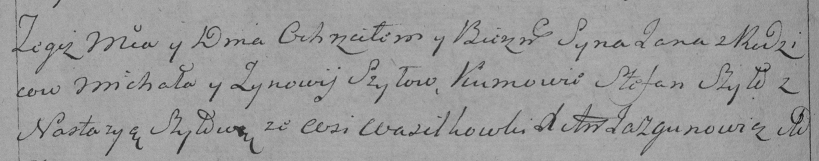 Tegiż Mca y Dnia Ochrzciłem y Bierzm Syna Jana z Rodzi
cow Michała y Zynowij Szyłow, Kumowie Stefan Szyło z
Nastazyą Szyłową ze Wsi Wasilkowki X An Jazgunowicz